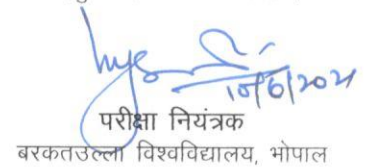 10/6/2021
परीक्षा नियंत्रक
बरकतउल्ला विश्वविद्यालय, भोपाल